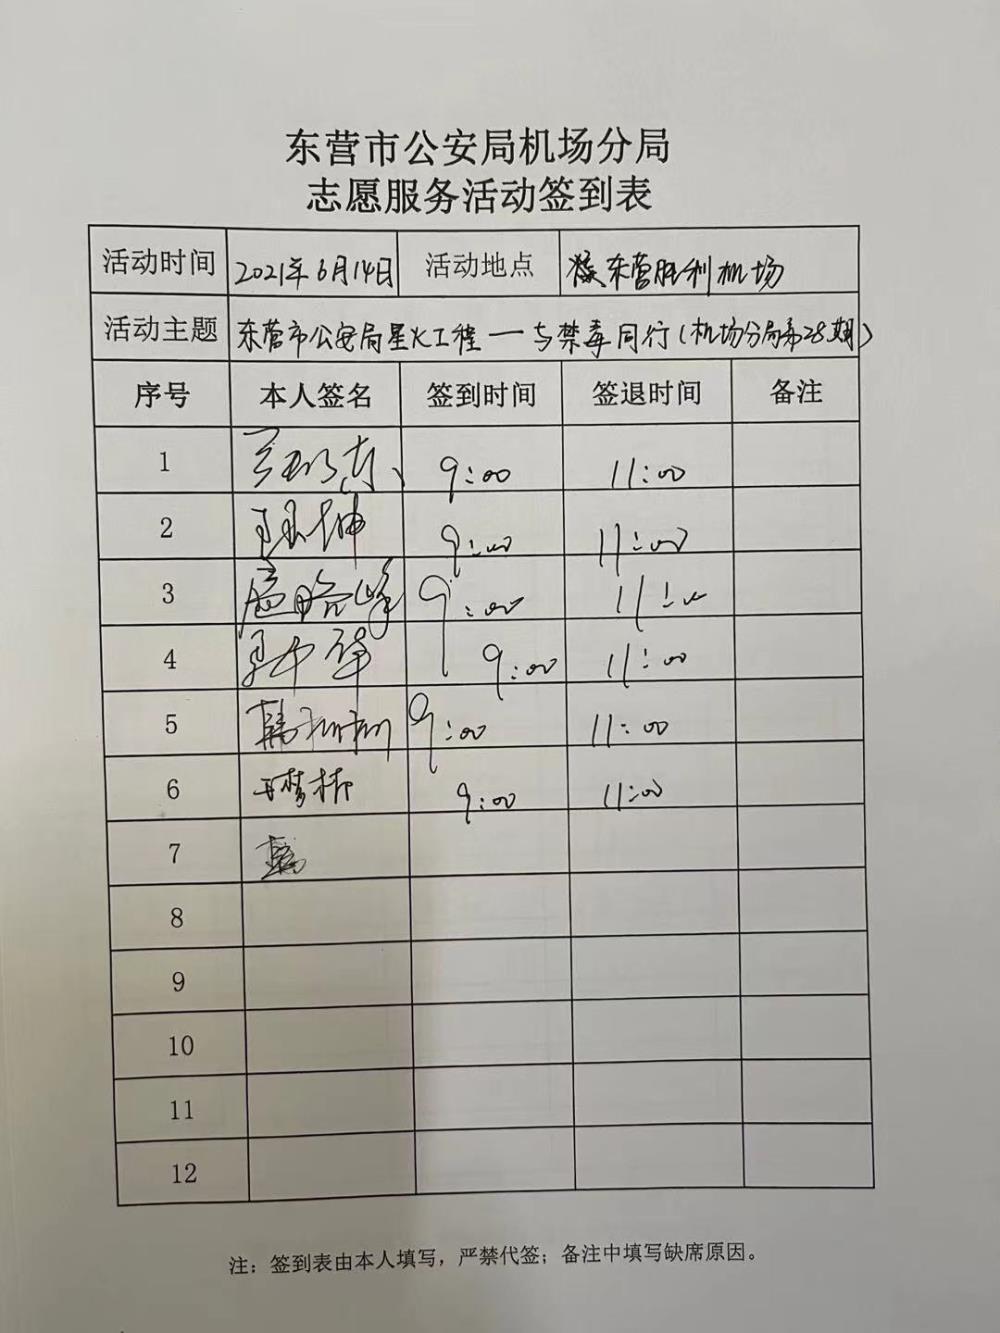 东营市公安局机场分局
志愿服务活动签到表
活动时间 2021年6月14日 活动地点 东营胜利机场
活动主题 东营市公安局星火工程一与禁毒同行(机场分局第28期)
序号 本人签名 签到时间 签退时间 备注
1 9:00 11:00
2 9:00 11:00
3 9:00 11:00
4 9:00 11:00
5 9:00 11:00
6 9:00 11:00
7
8
9
10
11
12
注：签到表由本人填写，严禁代签；备注中填写缺席原因。